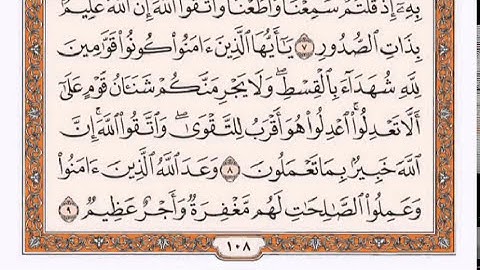 بِهِۦٓ إِذۡ قُلۡتُمۡ سَمِعۡنَا وَأَطَعۡنَاۖ وَٱتَّقُواْ ٱللَّهَۚ إِنَّ ٱللَّهَ عَلِيمُۢ
بِذَاتِ ٱلصُّدُورِ ٧ يَٰٓأَيُّهَا ٱلَّذِينَ ءَامَنُواْ كُونُواْ قَوَّٰمِينَ
لِلَّهِ شُهَدَآءَ بِٱلۡقِسۡطِۖ وَلَا يَجۡرِمَنَّكُمۡ شَنَـَٔانُ قَوۡمٍ عَلَىٰٓ
أَلَّا تَعۡدِلُواْۚ ٱعۡدِلُواْ هُوَ أَقۡرَبُ لِلتَّقۡوَىٰۖ وَٱتَّقُواْ ٱللَّهَۚ إِنَّ
ٱللَّهَ خَبِيرُۢ بِمَا تَعۡمَلُونَ ٨ وَعَدَ ٱللَّهُ ٱلَّذِينَ ءَامَنُواْ
وَعَمِلُواْ ٱلصَّٰلِحَٰتِ لَهُم مَّغۡفِرَةٞ وَأَجۡرٌ عَظِيمٞ ٩
١٠٨